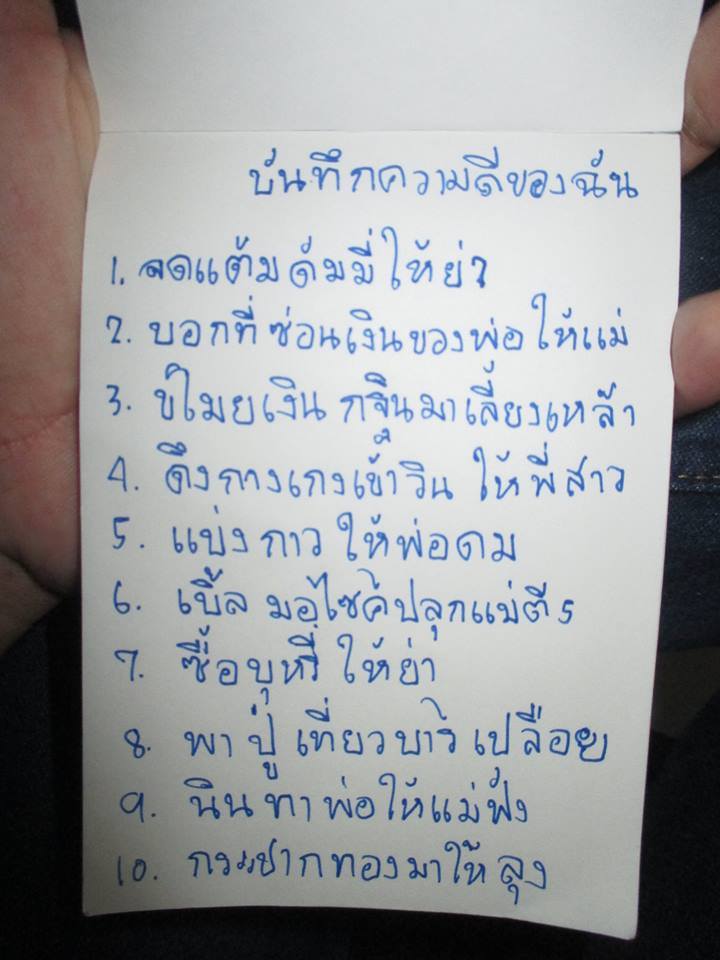 บันทึกความดีของฉัน
1. จดแต้มดัมมี่ให้ย่า
2. บอกที่ซ่อนเงินของพ่อให้แม่
3. ขโมยเงินกฐินมาเลี้ยงเหล้า
4. ดึงกางเกงเข้าวินให้พี่สาว
5. แบ่งกาวให้พ่อดม
6. เบิ้ลมอไซค์ปลุกแม่ตี 5
7. ซื้อบุหรี่ให้ย่า
8. พาปู่เที่ยวบาร์เปลือย
9. นินทาพ่อให้แม่ฟัง
10. กระชากทองมาให้ลุง